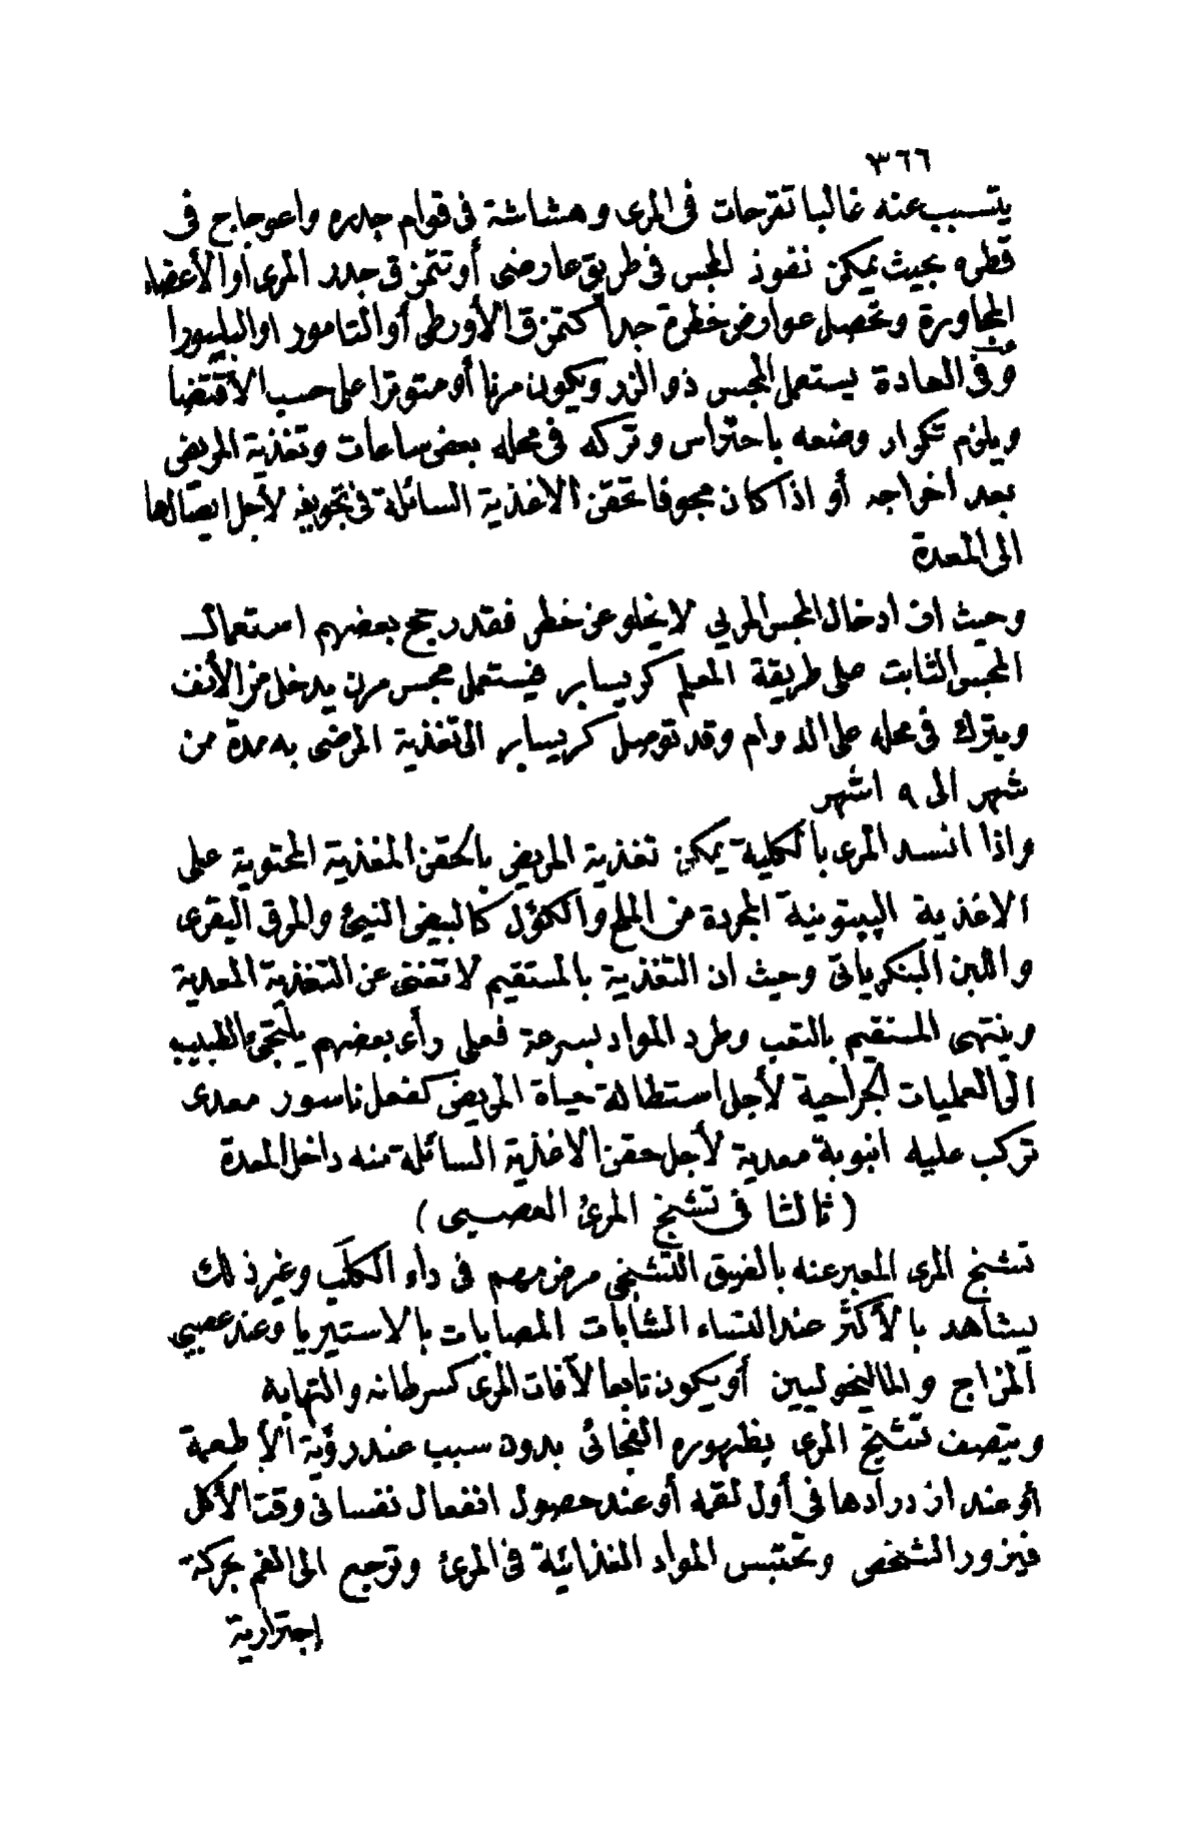 ٣٦٦
يتسبب عنه غالبا تقرحات فى المرى وهشاشة فى قوام جدره واعوجاج فى
قطره بحيث يمكن نفوذ المجس فى طريق عارضى أو تتمزق جدر المرى أو الأعضاء
المجاورة وتحصل عوارض خطرة جدا كتمزق الأورطى أو التامور او البليورا
وفى العادة يستعمل المجس ذو الزر ويكون مرنا أو متوترا على حسب الاقتضا
ويلزم تكرار وضعه باحتراس وتركه فى محله بعض ساعات وتغذية المريض
بعد اخراجه أو اذا كان مجوفا تحقن الاغذية السائلة فى تجويفه لأجل ايصالها
الى المعدة
وحيث ان ادخال المجس المريى لا يخلو عن خطر فقد رجح بعضهم استعمال
المجس الثابت على طريقة المعلم كريسابر فيستعمل مجس مرن يدخل من الأنف
ويترك فى محله على الدوام وقد توصل كريسابر الى تغذية المرضى به مدة من
شهر الى ٩ اشهر
واذا انسد المرى بالكلية يمكن تغذية المريض بالحقن المغذية المحتوية على
الاغذية الپبتونية المجردة من الملح والكؤل كالبيض النيئ والمرق البقرى
واللبن البنكرياتى وحيث ان التغذية بالمستقيم لا تغنى عن التغذية المعدية
وينتهى المستقيم بالتعب وطرد المواد بسرعة فعلى رأى بعضهم يلتجئ الطبيب
الى العمليات الجراحية لأجل استطالة حياة المريض كفعل ناسور معدى
تركب عليه انبوبة معدية لأجل حقن الاغذية السائلة منه داخل المعدة
(ثالثا فى تشنج المرئ العصبى)
تشنج المرى المعبر عنه بالضيق التشنجى مرض مهم فى داء الكلَب وغير ذلك
يشاهد بالأكثر عند النساء الشابات المصابات بالاستيريا وعند عصبيي
المزاج والماليخوليين أو يكون تابعا لآفات المرى كسرطانه والتهابه
ويتصف تشنج المرى بظهوره الفجائى بدون سبب عند رؤية الأطعمة
أو عند ازدرادها فى أول لقمه أو عند حصول انفعال نفسانى وقت الأكل
فيزور الشخص وتحتبس المواد الغذائية فى المرئ وترجع الى الفم بحركة
إجترارية